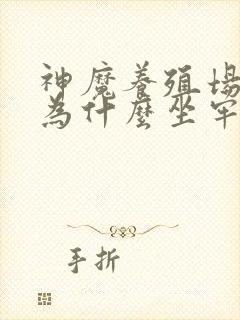 神魔養殖場
為什麼坐牢
手折